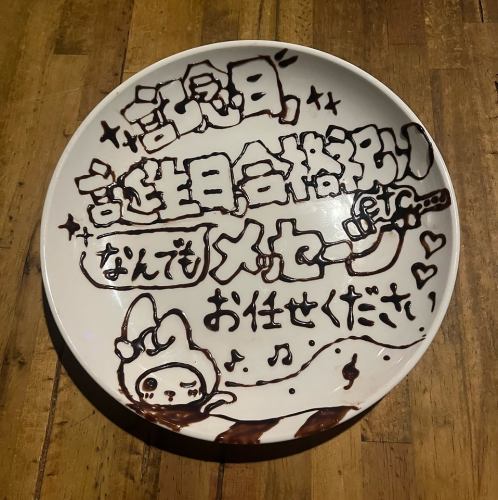 記念日
誕生日合格祝い
etc
なんでもメッセージ
お任せください